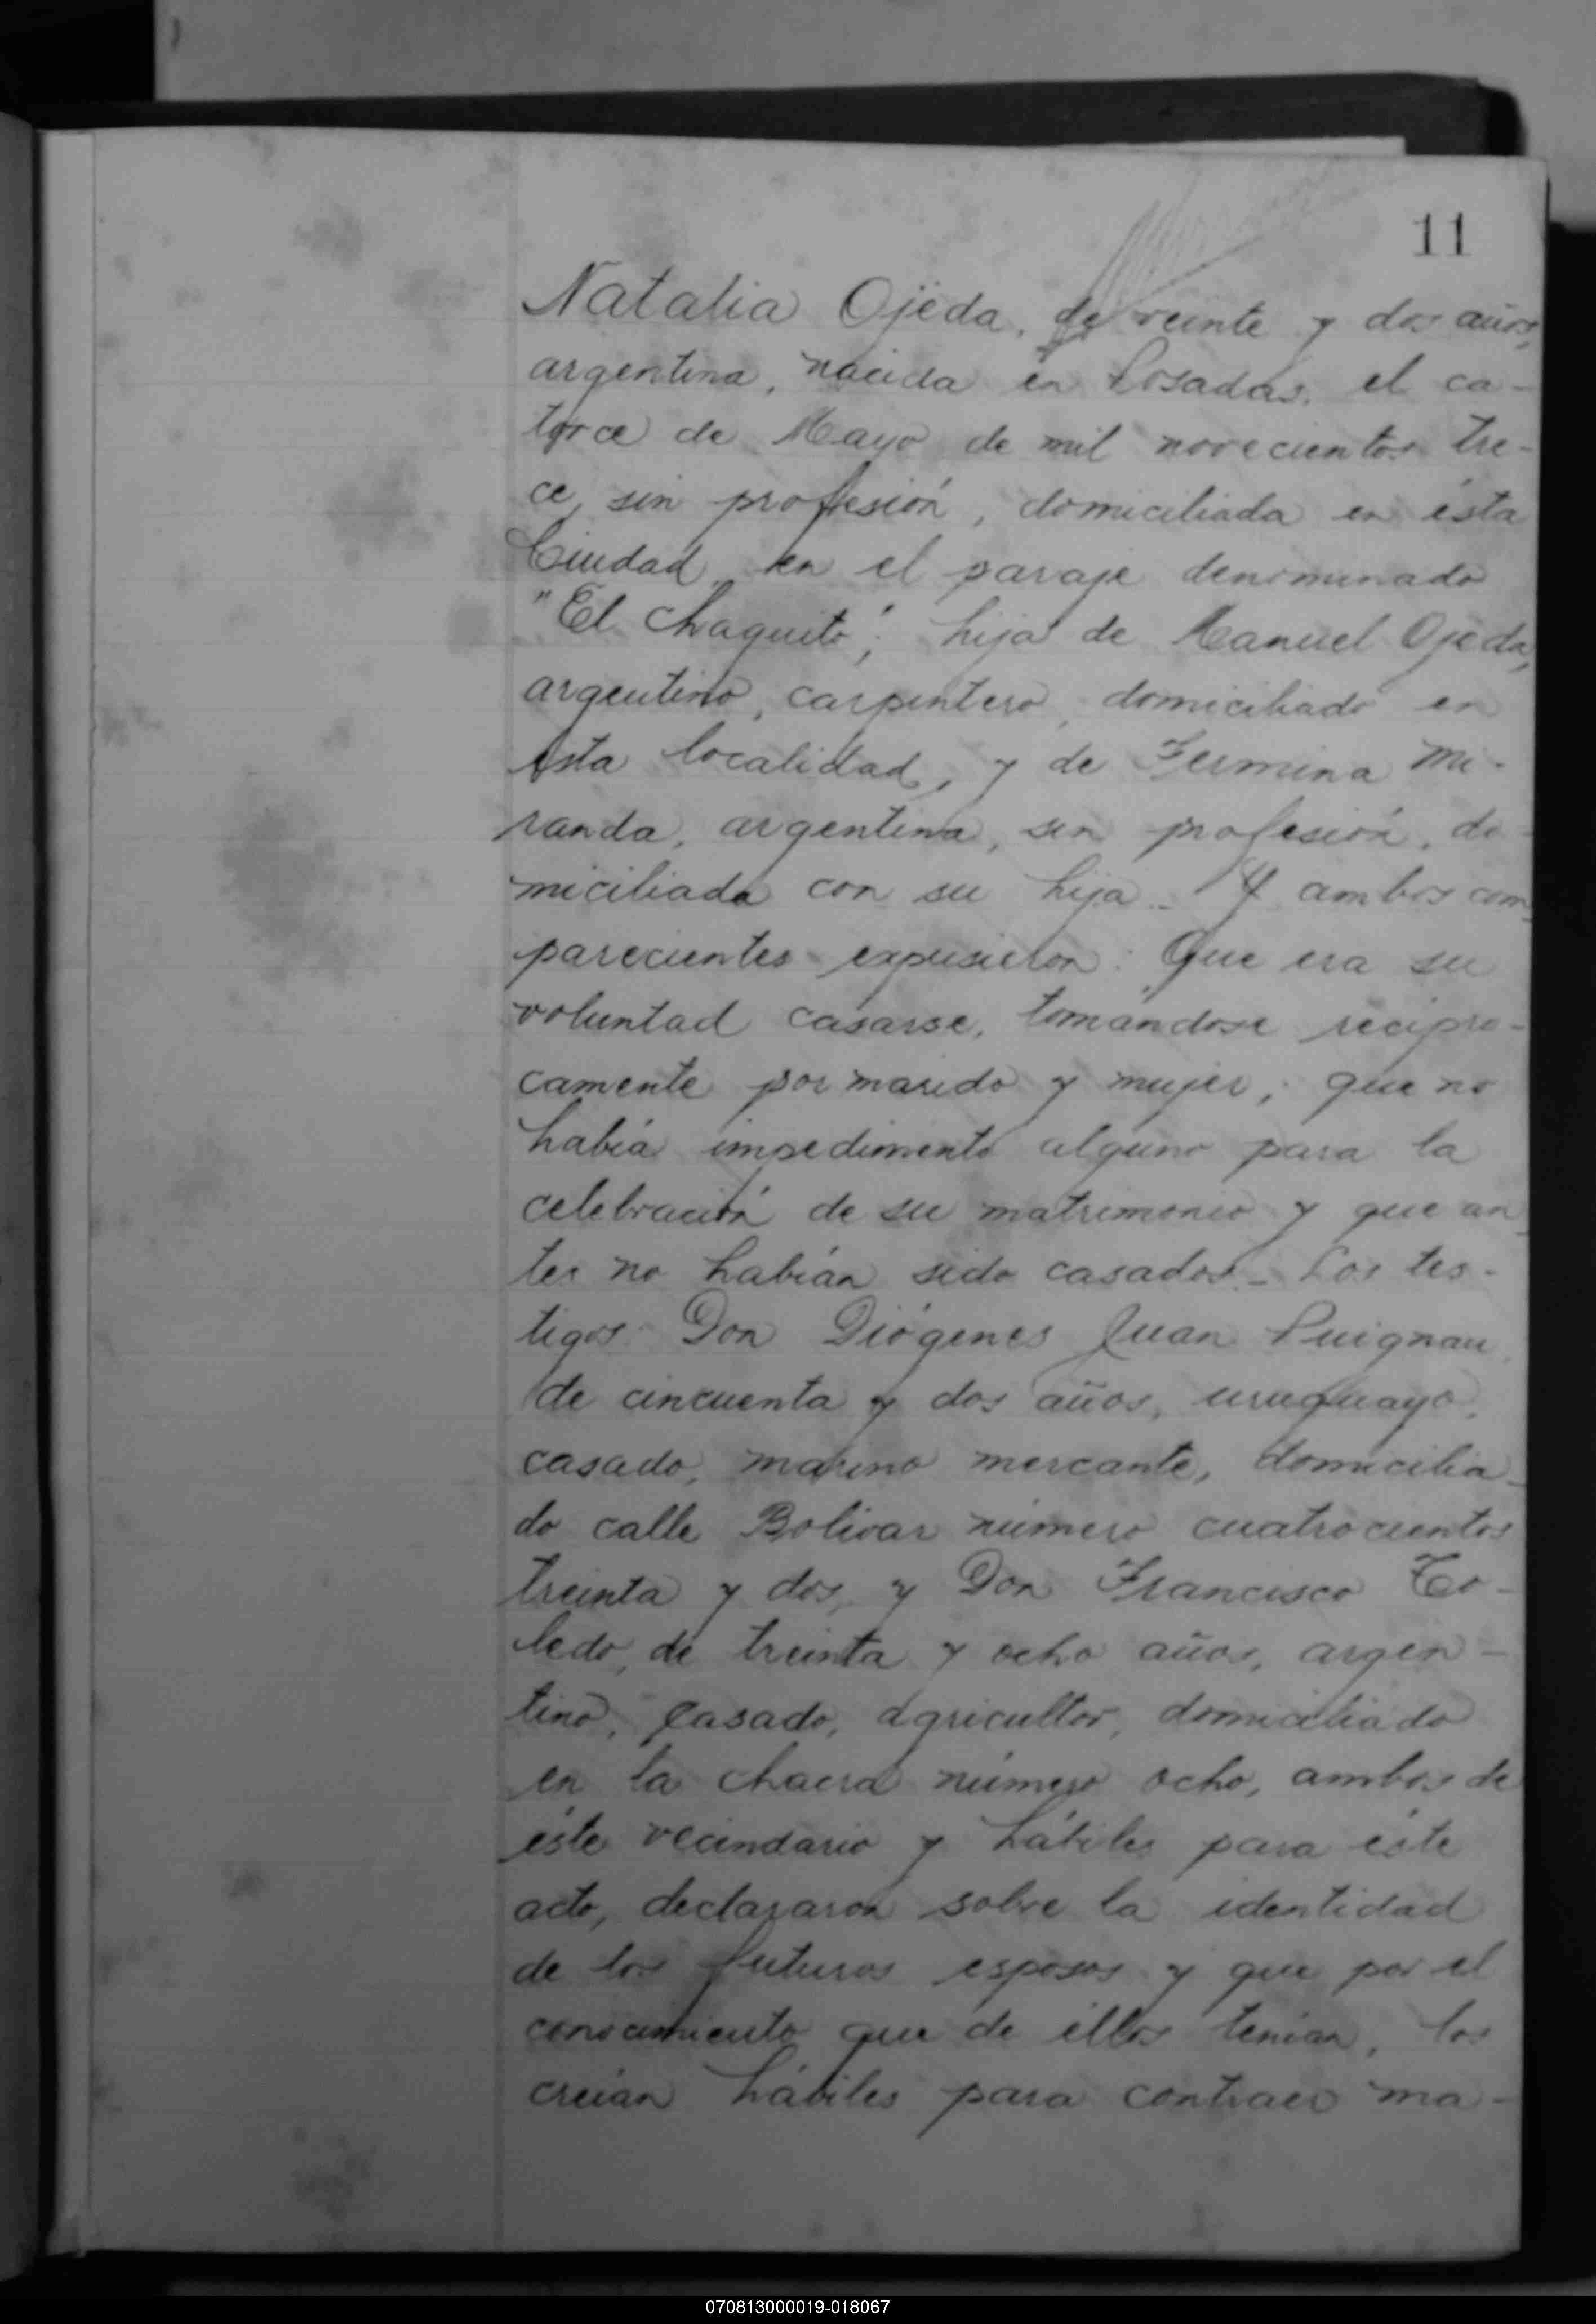 11
Natalia Ojeda, de veinte y dos años,
argentina, nacida en Posadas, el ca-
torce de Mayo de mil novecientos tre-
ce, sin profesión, domiciliada en ésta
Ciudad en el paraje denominado
"El Chaquito", hija de Manuel Ojeda,
argentino, carpintero, domiciliado en
ésta localidad, y de Fermina Mi-
randa, argentina, sin profesión, do-
miciliada con su hija.- Y ambos com-
parecientes expusieron: Que era su
voluntad casarse, tomándose recipro-
camente por marido y mujer, que no
había impedimento alguno para la
celebración de su matrimonio y que an-
tes no habían sido casados.- Los tes-
tigos Don Diógenes Juan Puignau,
de cincuenta y dos años, uruguayo,
casado, marino mercante, domicilia-
do calle Bolivar número cuatrocientos
treinta y dos, y Don Francisco To-
ledo, de treinta y ocho años, argen-
tino, casado, agricultor, domiciliado
en la chacra número ocho, ambos de
éste vecindario y hábiles para éste
acto, declararon sobre la identidad
de los futuros esposos y que por el
conocimiento que de éllos tenían, los
creían hábiles para contraer ma-
070813000019-018067